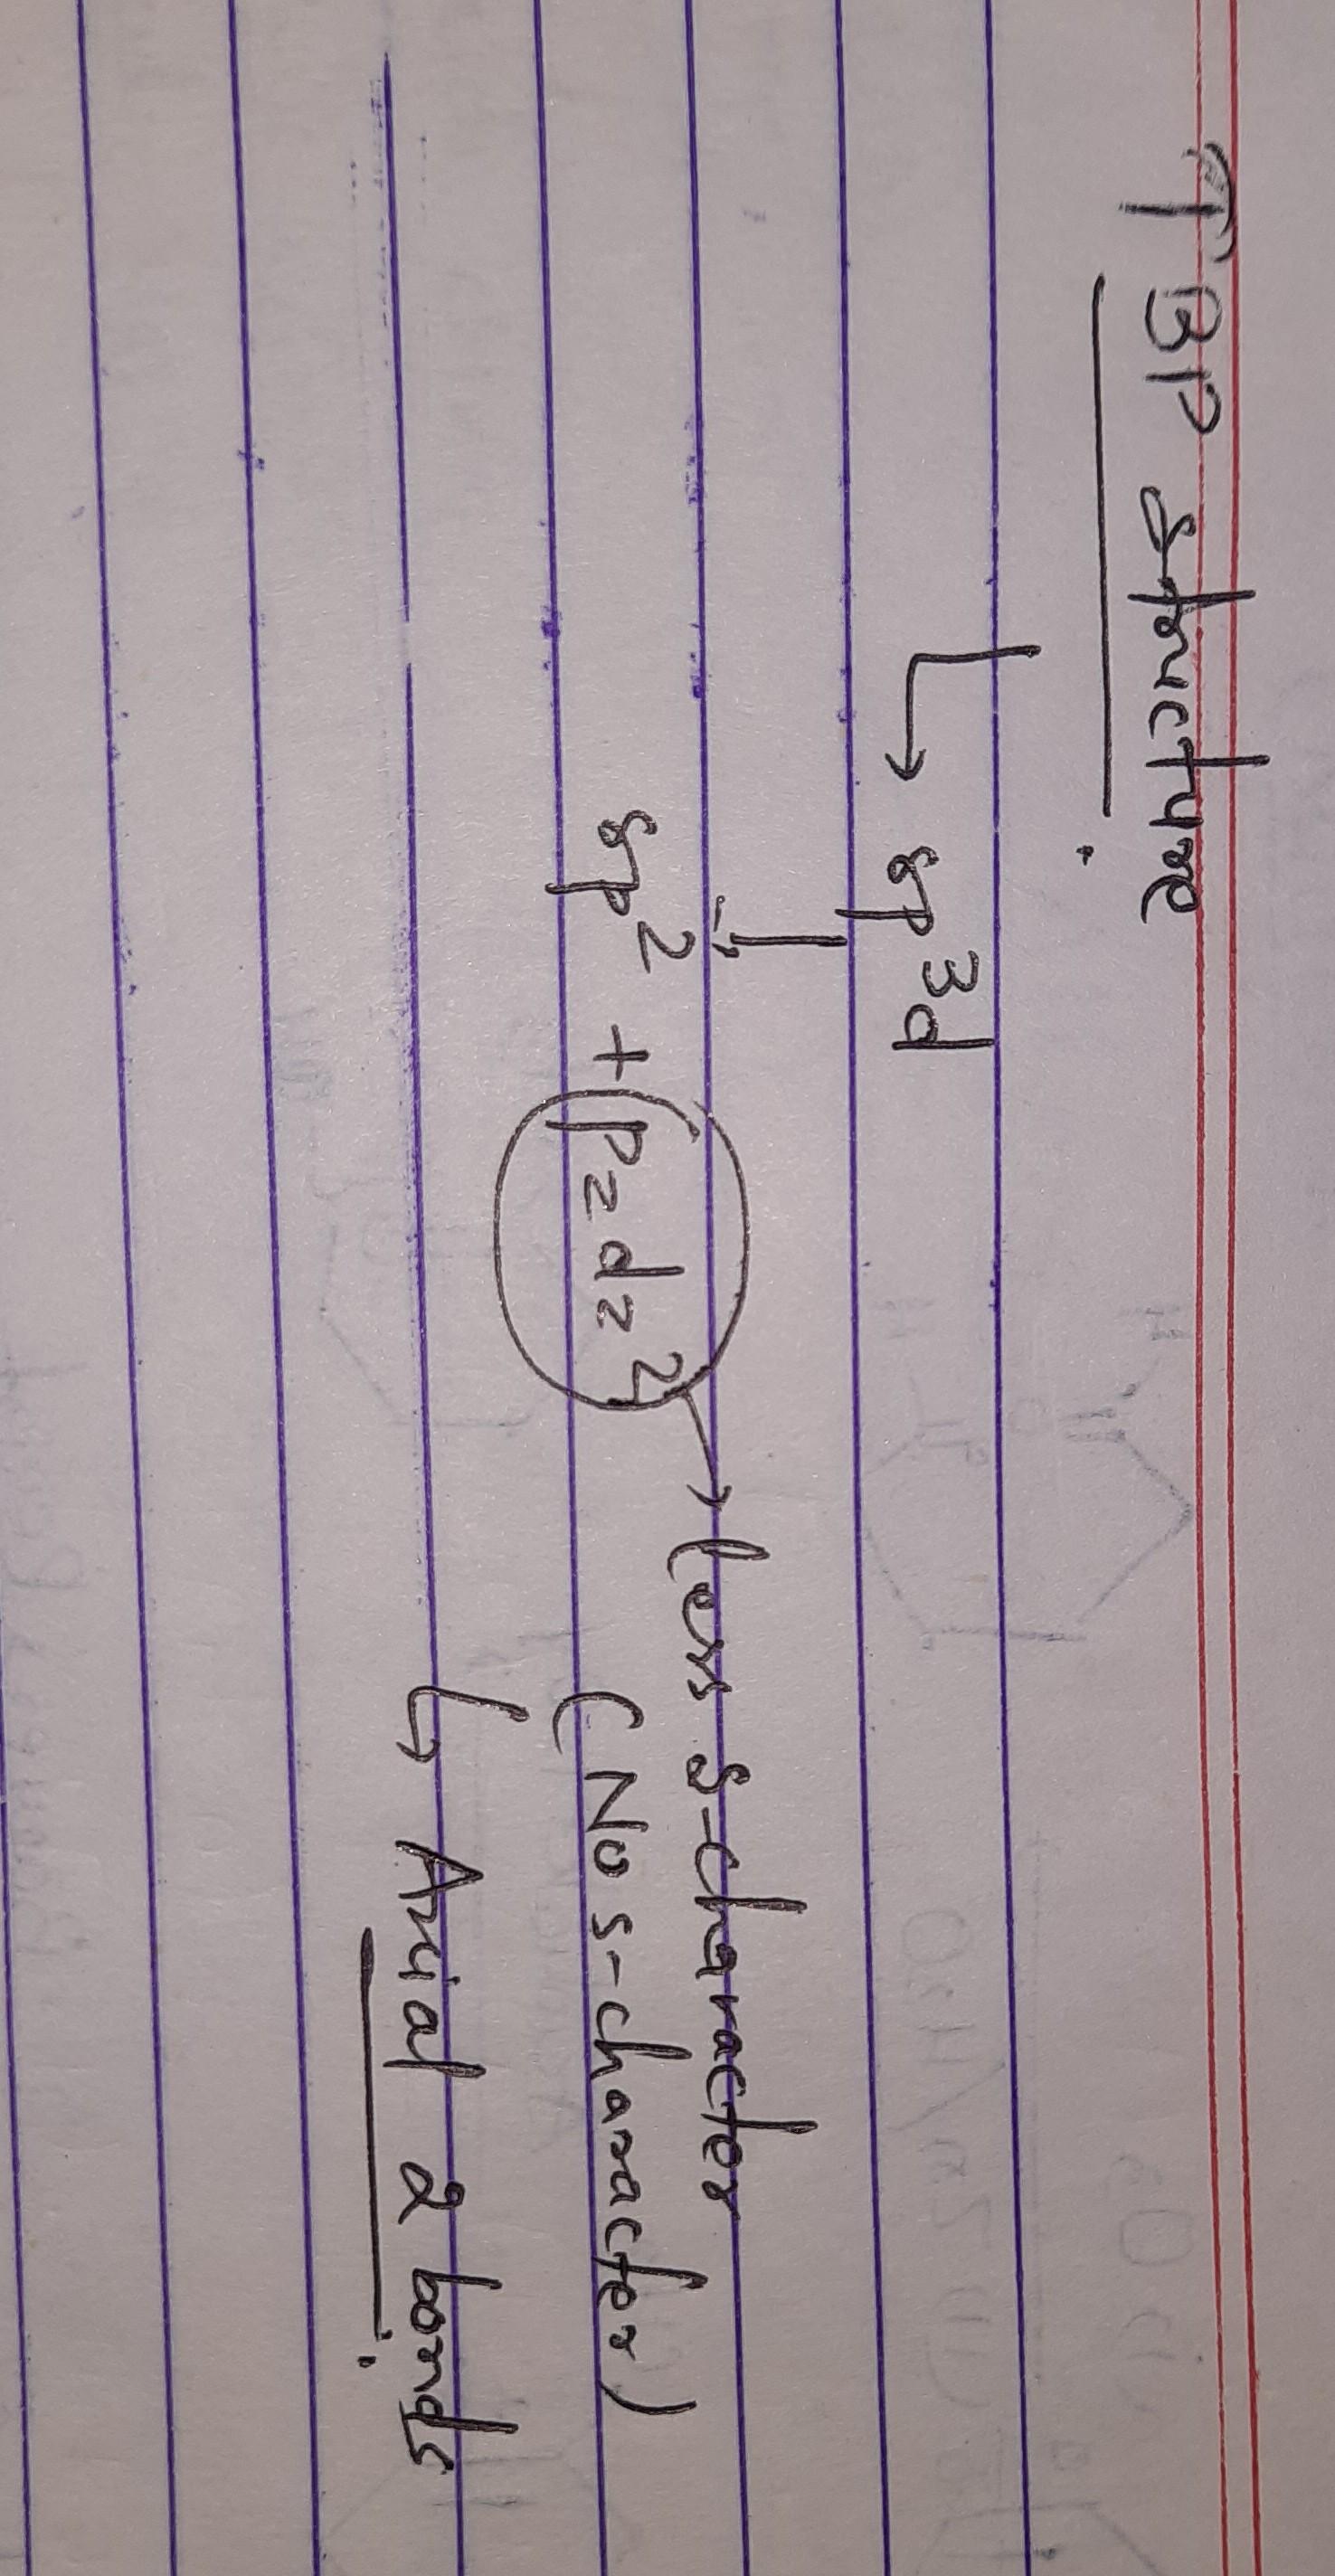 TBP structure
↳ sp³d
↓
sp² + pzdz² → less s-character
(No s-character)
↳ Axial 2 bonds